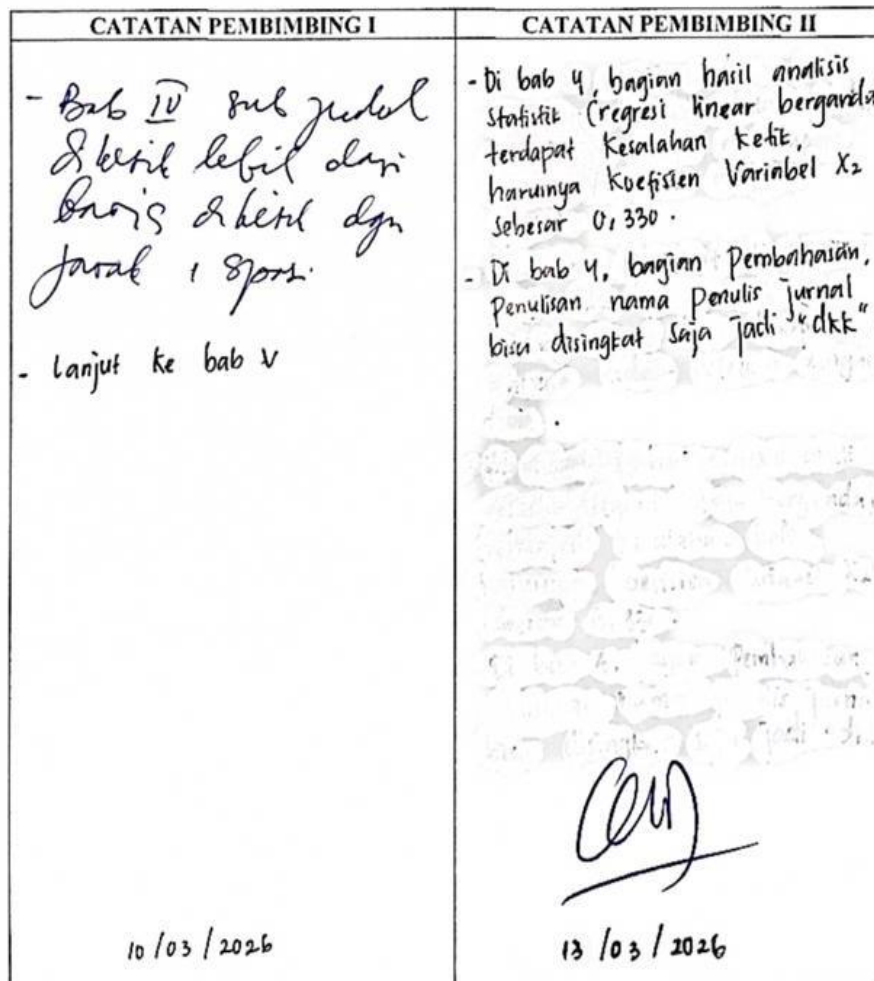 CATATAN PEMBIMBING I
- Bab IV sub judul
diketik lebih dari
baris diketik dgn
jarak 1 spasi.
- lanjut ke bab V
10/03/2026
CATATAN PEMBIMBING II
- Di bab 4, bagian hasil analisis
statistik (regresi linear berganda
terdapat kesalahan ketik
harusnya koefisien Variabel X2
sebesar 0,330.
- Di bab 4, bagian Pembahasan,
Penulisan nama Penulis jurnal
bisa disingkat saja jadi "dkk"
13/03/2026